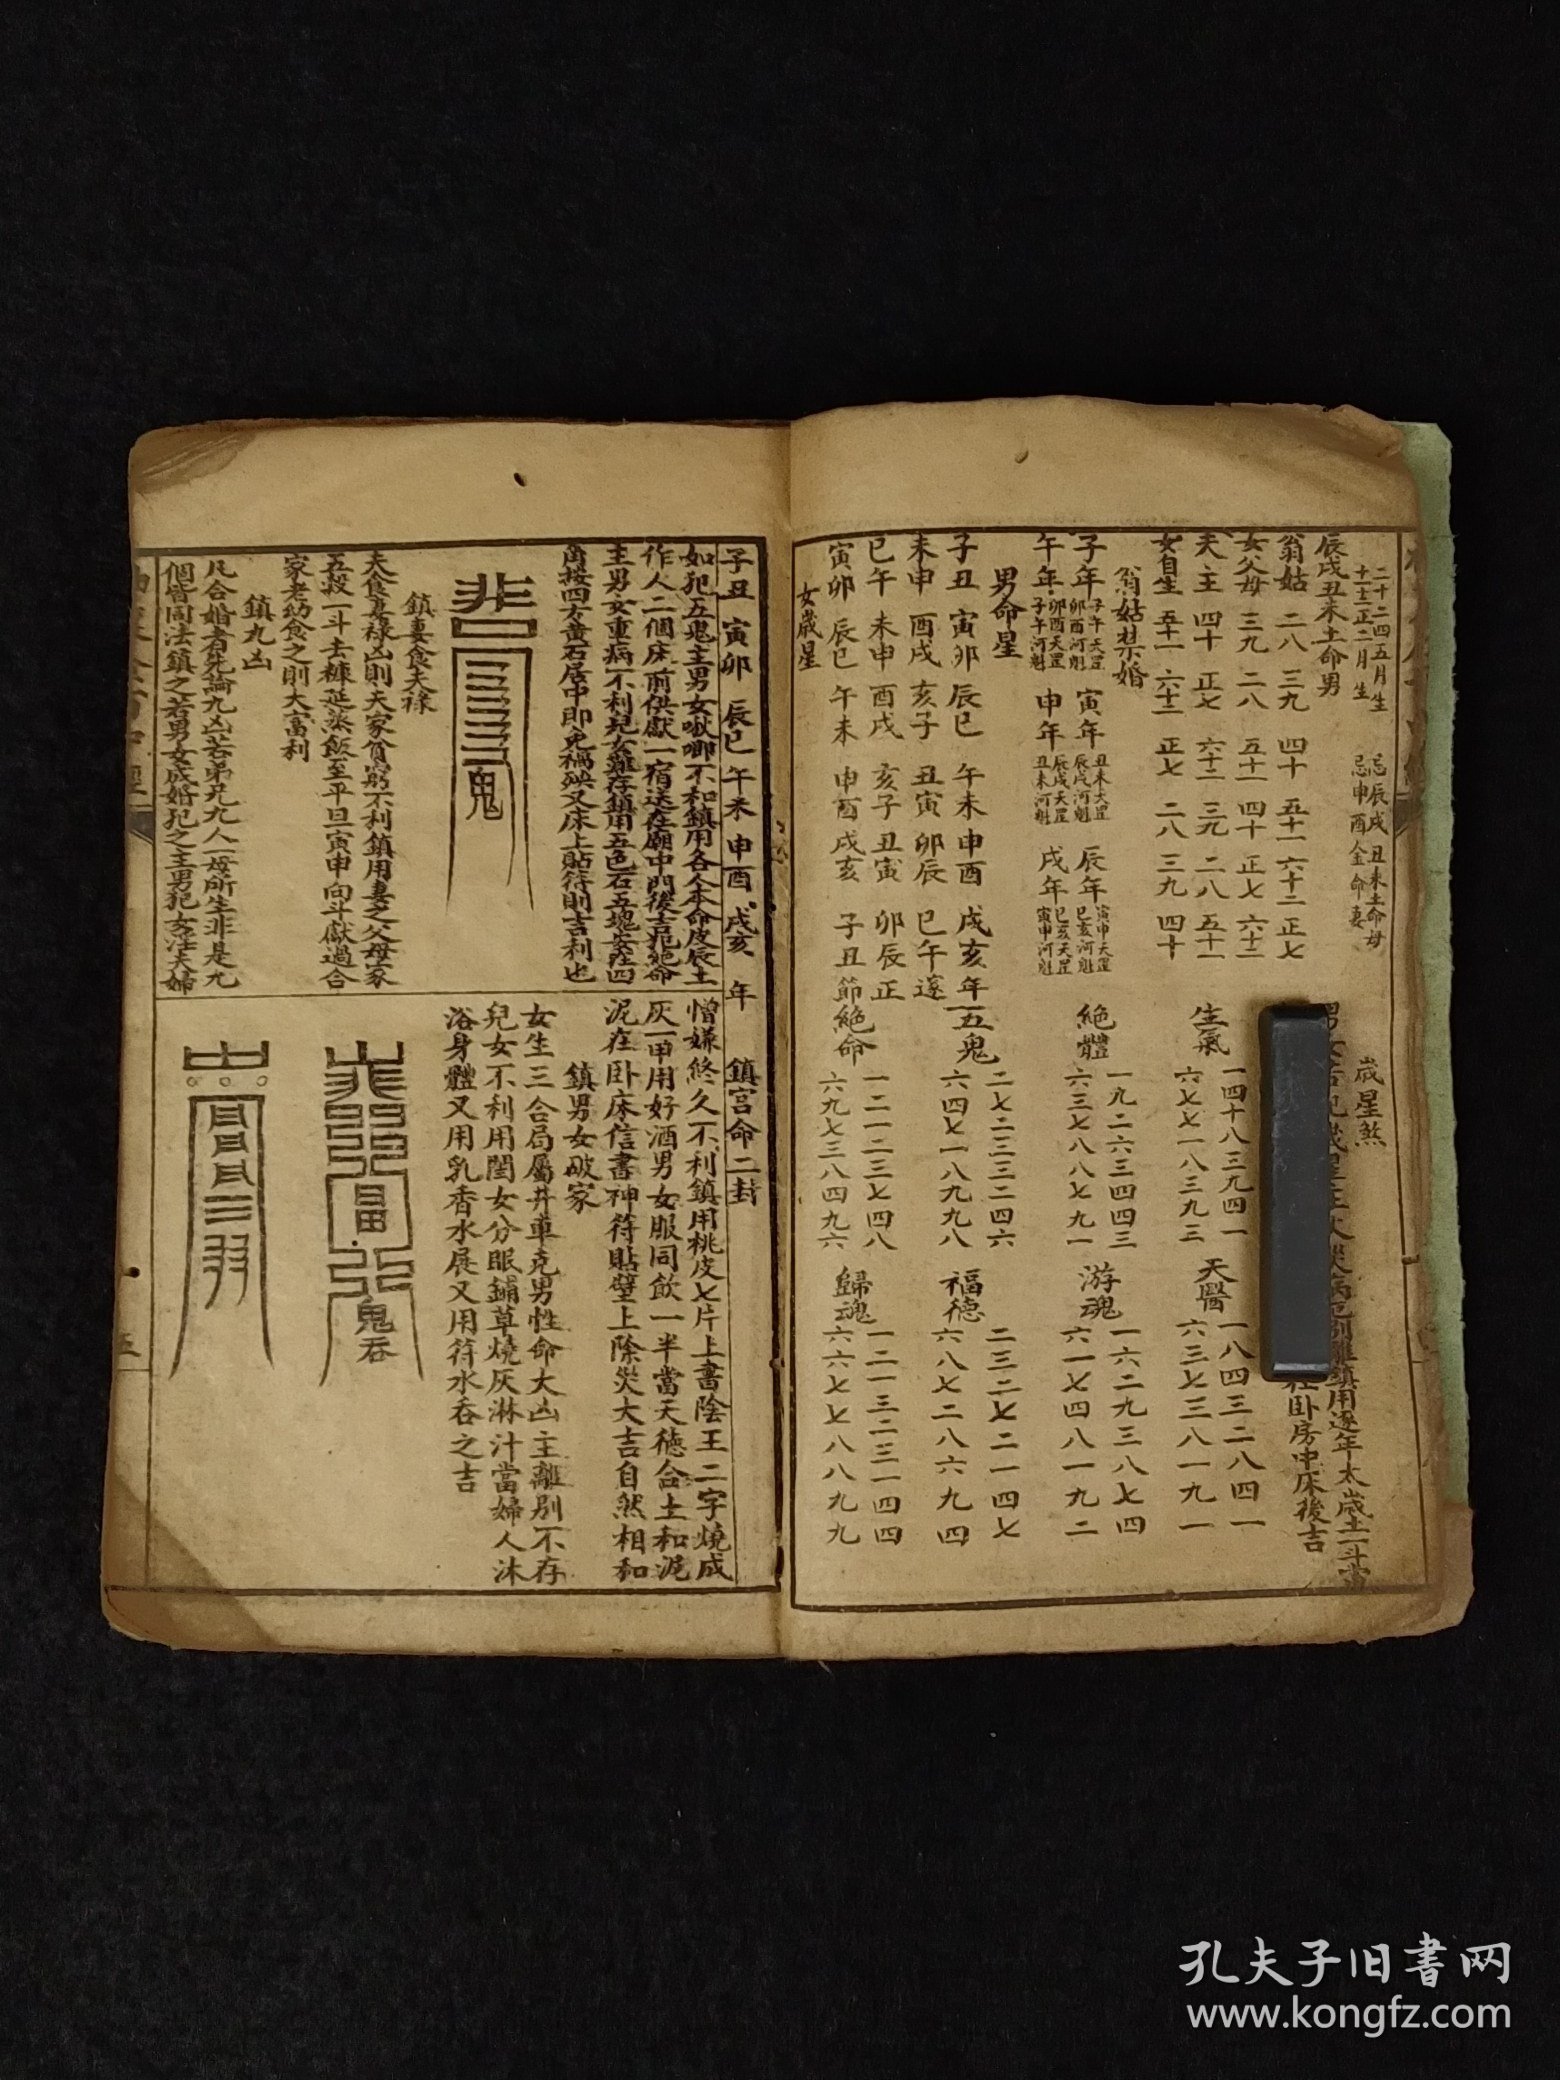 二十二四五月生　忌辰戌丑未土命母
十十三正二月生　忌申酉金命妻
辰戌丑未土命男
翁姑　二八　三九　四十　五十一　六十二　正七
女父母　三九　二八　五十一　四十　正七　六十二
夫主　四十　正七　六十二　三九　二八　五十一
女自生　五十一　六十二　正七　二八　三九　四十
翁姑禁婚
子年　子午天罡　卯酉河魁　寅年　丑未天罡　辰戌河魁　辰年　寅申天罡　巳亥河魁
午年　卯酉天罡　子午河魁　申年　辰戌天罡　丑未河魁　戌年　巳亥天罡　寅申河魁
男命星
子丑　寅卯　辰巳　午未　申酉　戌亥年
未申　酉戌　亥子　丑寅　卯辰　巳午逐
巳午　未申　酉戌　亥子　丑寅　卯辰正
寅卯　辰巳　午未　申酉　戌亥　子丑節
女歲星
歲星煞
在卧房中床後吉
生氣　一四十八三九四一
六七七一八三九三
天醫　一八四三二八四一
六三七三八一九一
絶體　一九二六三四四三
六三七八八七九一
游魂　一六二九三八七四
六一七四八一九二
五鬼　二七二三三二四六
六四七一八九九八
福德　二三二七二一四七
六八七二八六九四
絶命　一二一二三七四八
六九七三八四九六
歸魂　一二一三二三一四四
六六七七八八九九
子丑　寅卯　辰巳　午未　申酉　戌亥　年　鎮宮命二封
如犯五鬼主男女啾唧不和鎮用各人本命皮辰土
作人二個床前供獻一宿送在廟中門後吉犯絶命
主男女重病不利兒女難存鎮用五色石五塊安在四
角按四方黄石居中即免禍殃又床上貼符則吉利也
鬼
鎮妻食夫祿
夫食妻祿凶則夫家貧窮不利鎮用妻之父母家
五穀一斗去糠延蒸飯至平旦寅申向斗獻過合
家老幼食之則大富利
鎮九凶
凡合婚者先論九凶若弟兄九人一母所生非是九
個皆同法鎮之若男女成婚犯之主男犯女注夫婦
憎嫌終久不利鎮用桃皮七片上書陰王二字燒成
灰一甲用好酒男女服同飲一半當天德合土和泥
泥在卧床信書神符貼壁上除災大吉自然相和
鎮男女破家
女生三合局屬井車克男性命大凶主離别不存
兒女不利用閨女分眠鋪草燒灰淋汁當婦人沐
浴身體又用乳香水展又用符水吞之吉
鬼吞
五
孔夫子旧书网
www.kongfz.com